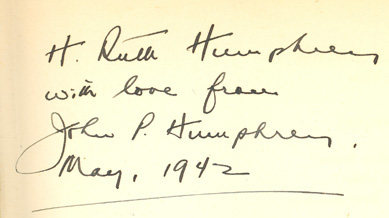 H. Ruth Humphrey
with love from
John P. Humphrey.
May, 1942